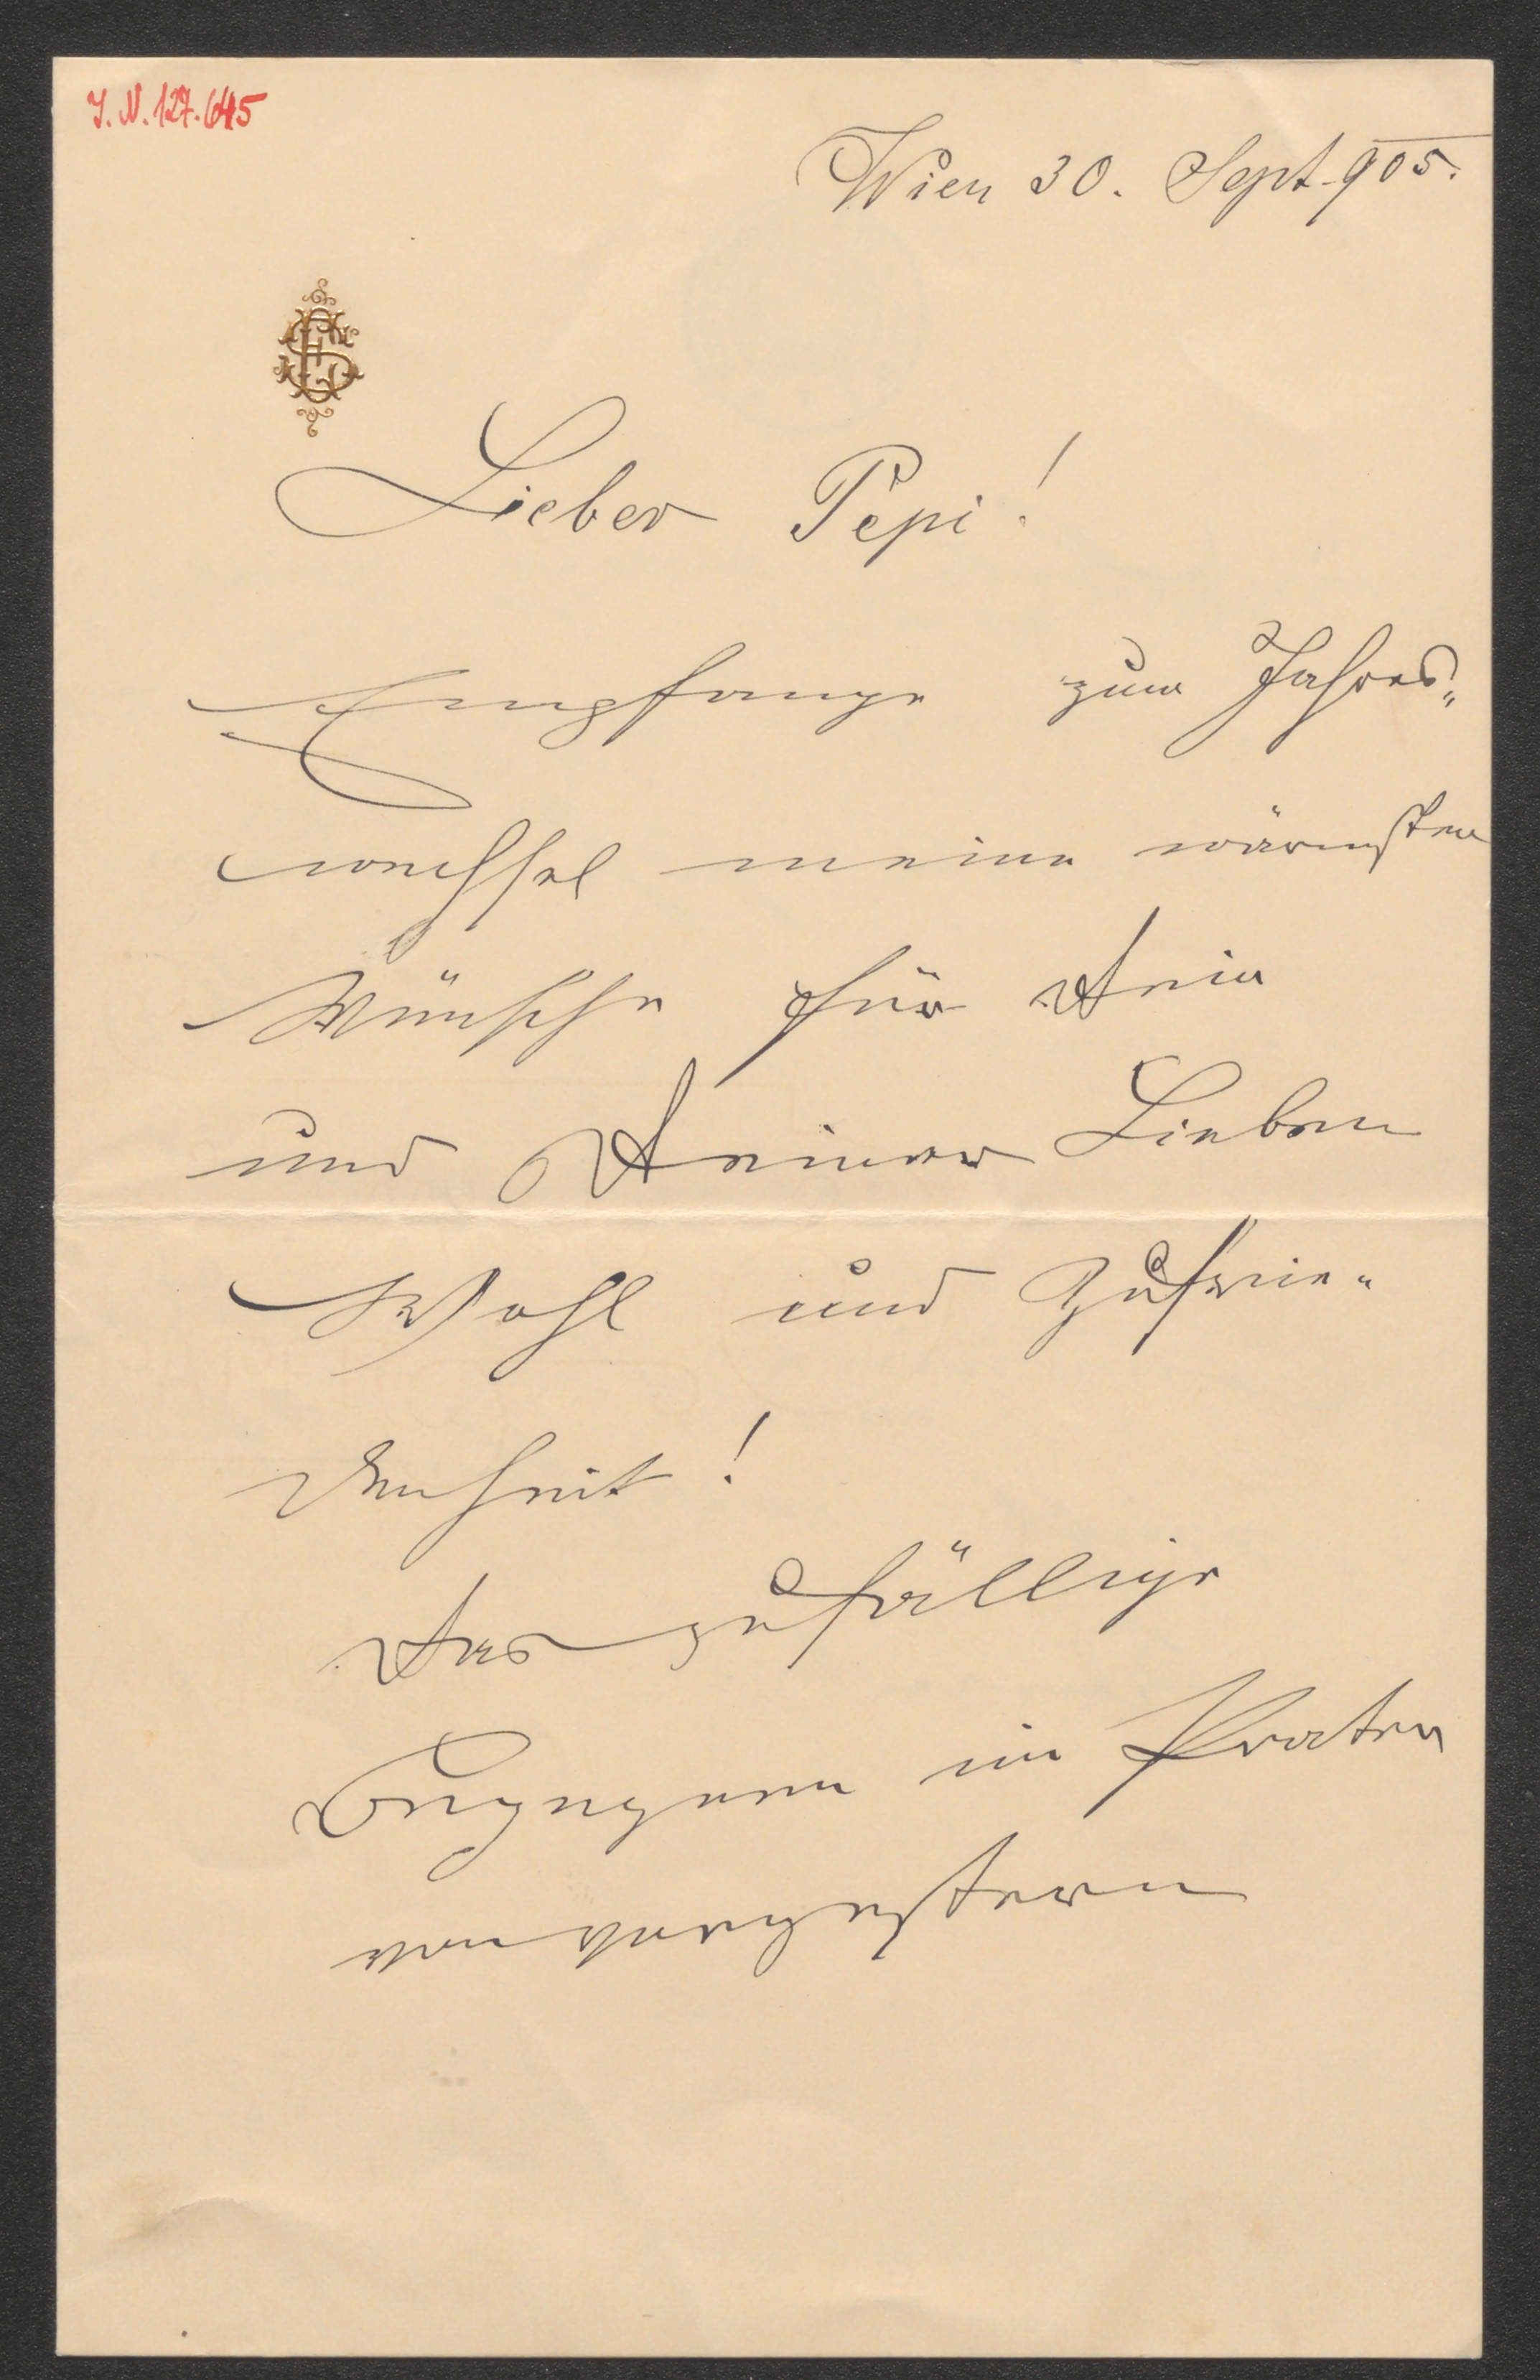 J. N. 127.645
Wien 30. Sept. 905.
Lieber Pepi!
Empfange zum Jahres„
wechsel meine wärmsten
Wünsche für Dein
und Deiner Lieben
Wohl und Zufrie„
denheit!
Das zufällige
Begegnen im Prater
von vorgestern